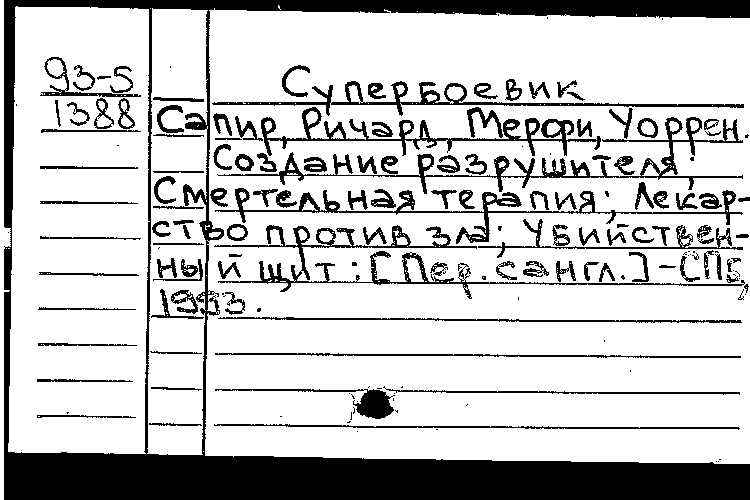 93-5
1388
Супербоевик
Сапир, Ричард, Мерфи, Уоррен.
Создание разрушителя;
Смертельная терапия; Лекар-
ство против зла; Убийствен-
ный щит: [Пер. с англ.] - СПб,
1993.